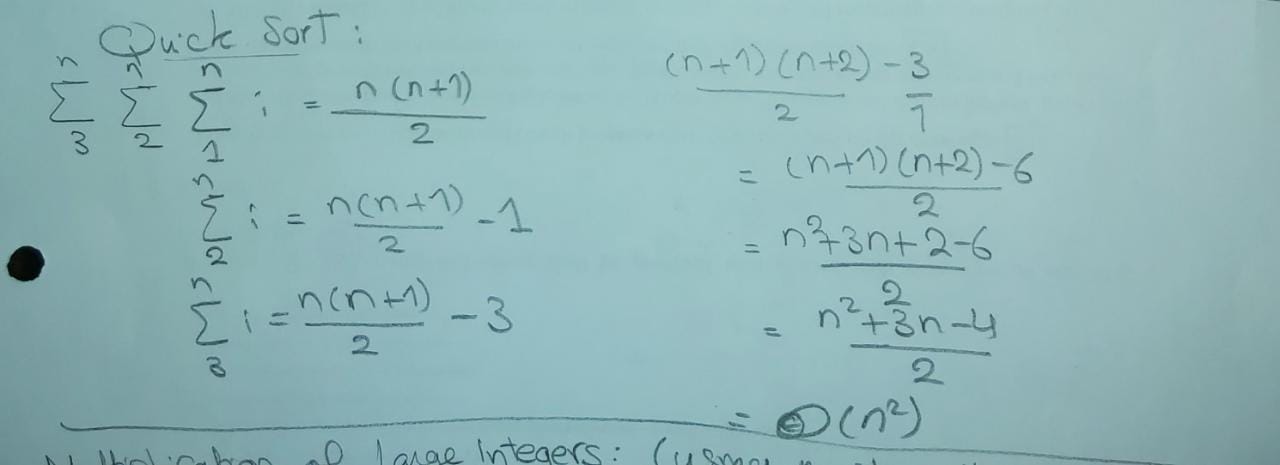 Quick Sort:
n∑3 n∑2 n∑1 i = n(n+1)/2
n∑2 i = n(n+1)/2 - 1
n∑3 i = n(n+1)/2 - 3
(n+1)(n+2)/2 - 3/1
= (n+1)(n+2)-6/2
= n²+3n+2-6/2
= n²+3n-4/2
= Θ(n²)
of large Integers: (using